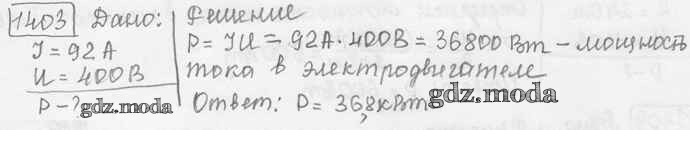 1403 Дано:
I = 92 А
U = 400 В
P - ?
gdz.moda
Решение
P = IU = 92А · 400В = 36800 Вт - мощность
тока в электродвигателе
Ответ: P = 36,8 кВт
gdz.moda